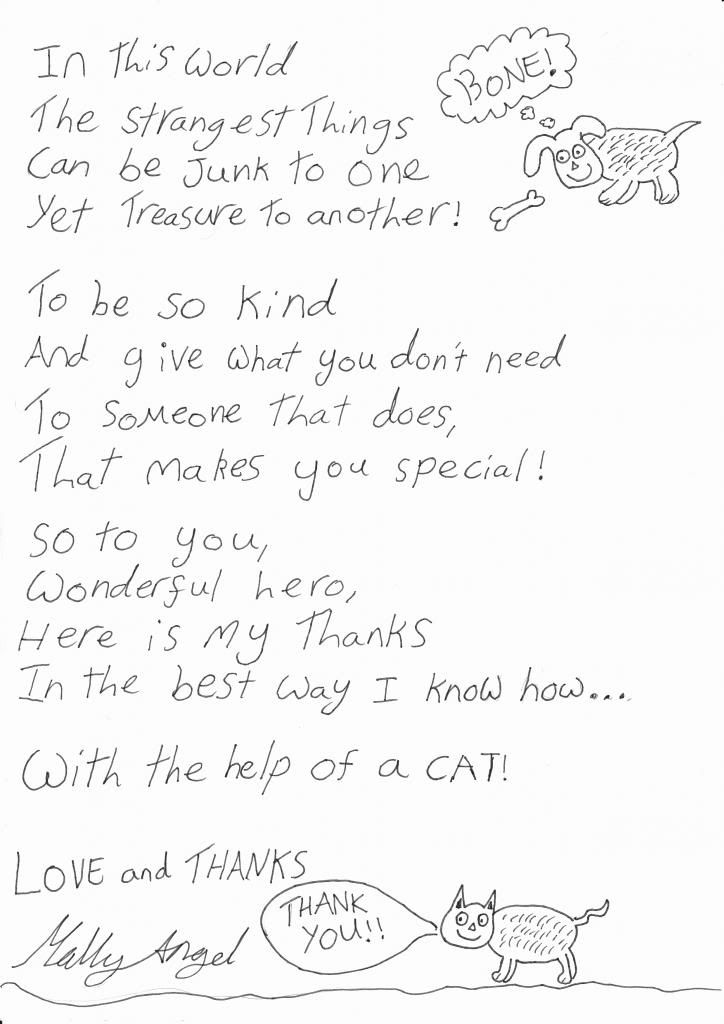 BONE!
In this world
The strangest Things
Can be junk to one
Yet Treasure to another!
To be so kind
And give what you don't need
To someone that does,
That makes you special!
So to you,
Wonderful hero,
Here is my Thanks
In the best way I know how...
With the help of a CAT!
LOVE and THANKS
THANK
YOU!!
Mally Angel